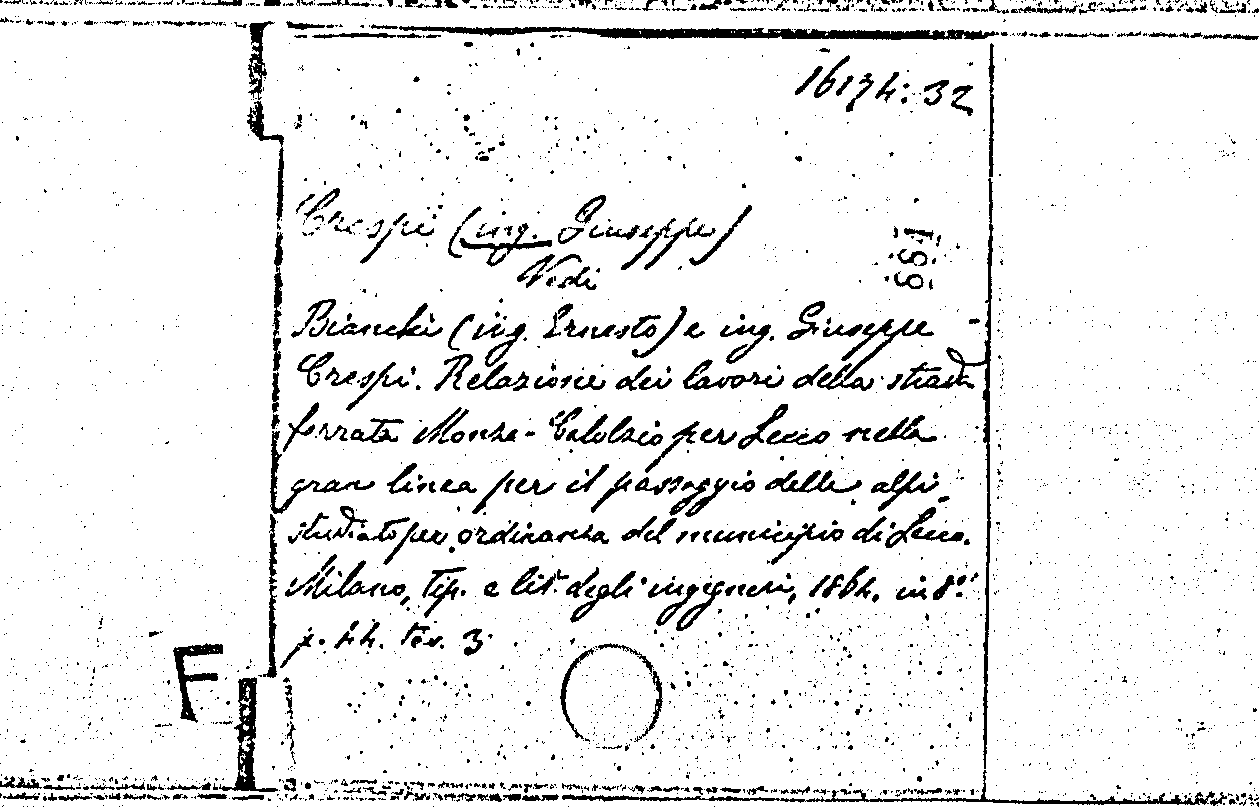 16134:32
Crespi (ing. Giuseppe)
Vedi
661
Bianchi (ing. Ernesto) e ing. Giuseppe
Crespi. Relazione dei lavori della strada
ferrata Monza-Calolzio per Lecco nella
gran linea per il passaggio delle alpi
studiato per ordinanza del municipio di Lecco.
Milano, tip. e lit. degli ingegneri, 1864. in 8.°
p. 44. tav. 3
F